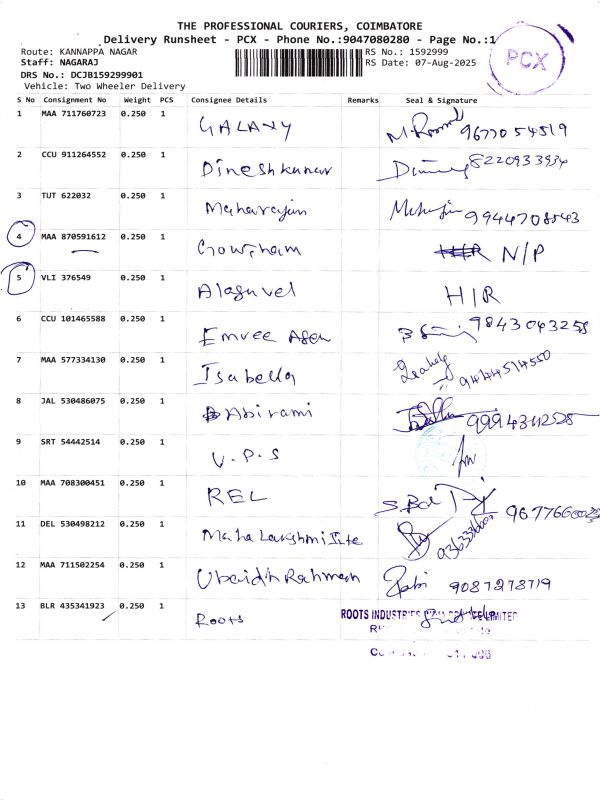 THE PROFESSIONAL COURIERS, COIMBATORE
Delivery Runsheet - PCX - Phone No.:9047080280 - Page No.:1
PCX
Route: KANNAPPA NAGAR RS No.: 1592999
Staff: NAGARAJ RS Date: 07-Aug-2025
DRS No.: DCJB159299901
Vehicle: Two Wheeler Delivery
S No Consignment No Weight PCS Consignee Details Remarks Seal & Signature
1 MAA 711760723 0.250 1 GALAXY 9677054519
2 CCU 911264552 0.250 1 Dineshkumar 8220933934
3 TUT 622032 0.250 1 Maharajan 9944708543
4 MAA 870591612 0.250 1 Gowtham N/P
5 VLI 376549 0.250 1 Alaguvel H/R
6 CCU 101465588 0.250 1 Emvee Agen 9843043258
7 MAA 577334130 0.250 1 Isabella 9444514550
8 JAL 530486075 0.250 1 Abirami 9994311258
9 SRT 54442514 0.250 1 V.P.S
10 MAA 708300451 0.250 1 REL
11 DEL 530498212 0.250 1 Maha Lakshmi
12 MAA 711502254 0.250 1 Ubaidh Rahman 9087278719
13 BLR 435341923 0.250 1 Roots ROOTS INDUSTRIES LIMITED